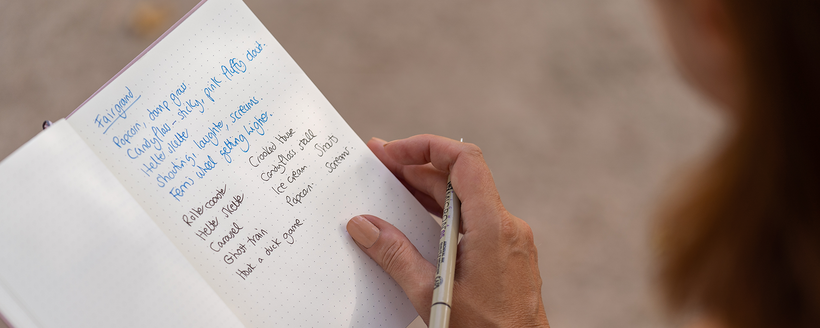 Fairground
Popcorn, damp grass
Candyfloss - sticky, pink fluffy cloud.
Helter Skelter
Shouting, laughter, screams.
Ferris wheel getting higher.
Roller coaster
Helter Skelter
Carousel
Ghost train
Hook a duck game.
Crooked House
Candyfloss stall
Ice cream
Popcorn.
Shouts
Screams.